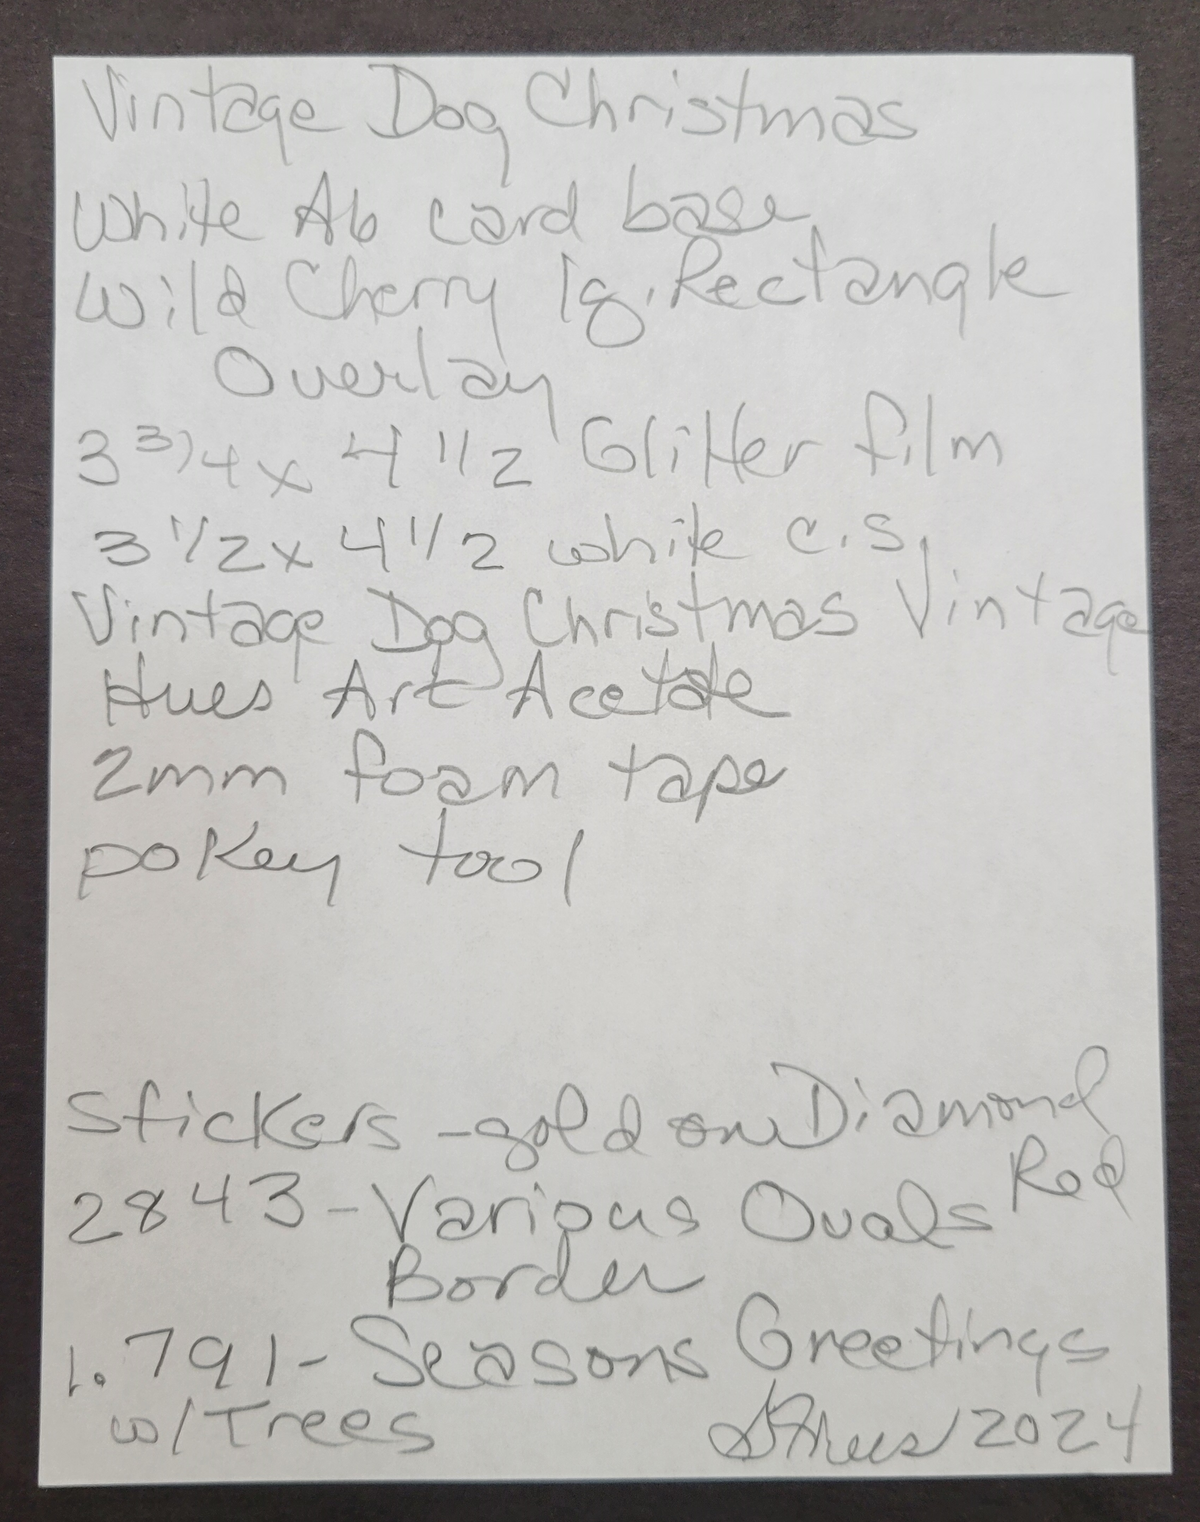 Vintage Dog Christmas
White A6 card base
Wild Cherry lg. Rectangle
Overlay
3 3/4 x 4 1/2 Glitter film
3 1/2 x 4 1/2 white c.s.
Vintage Dog Christmas Vintage
Hues Art Acetate
2mm foam tape
pokey tool
Stickers - gold on Diamond
Red
2843 - Various Ovals
Border
1.791 - Seasons Greetings
w/Trees 2024